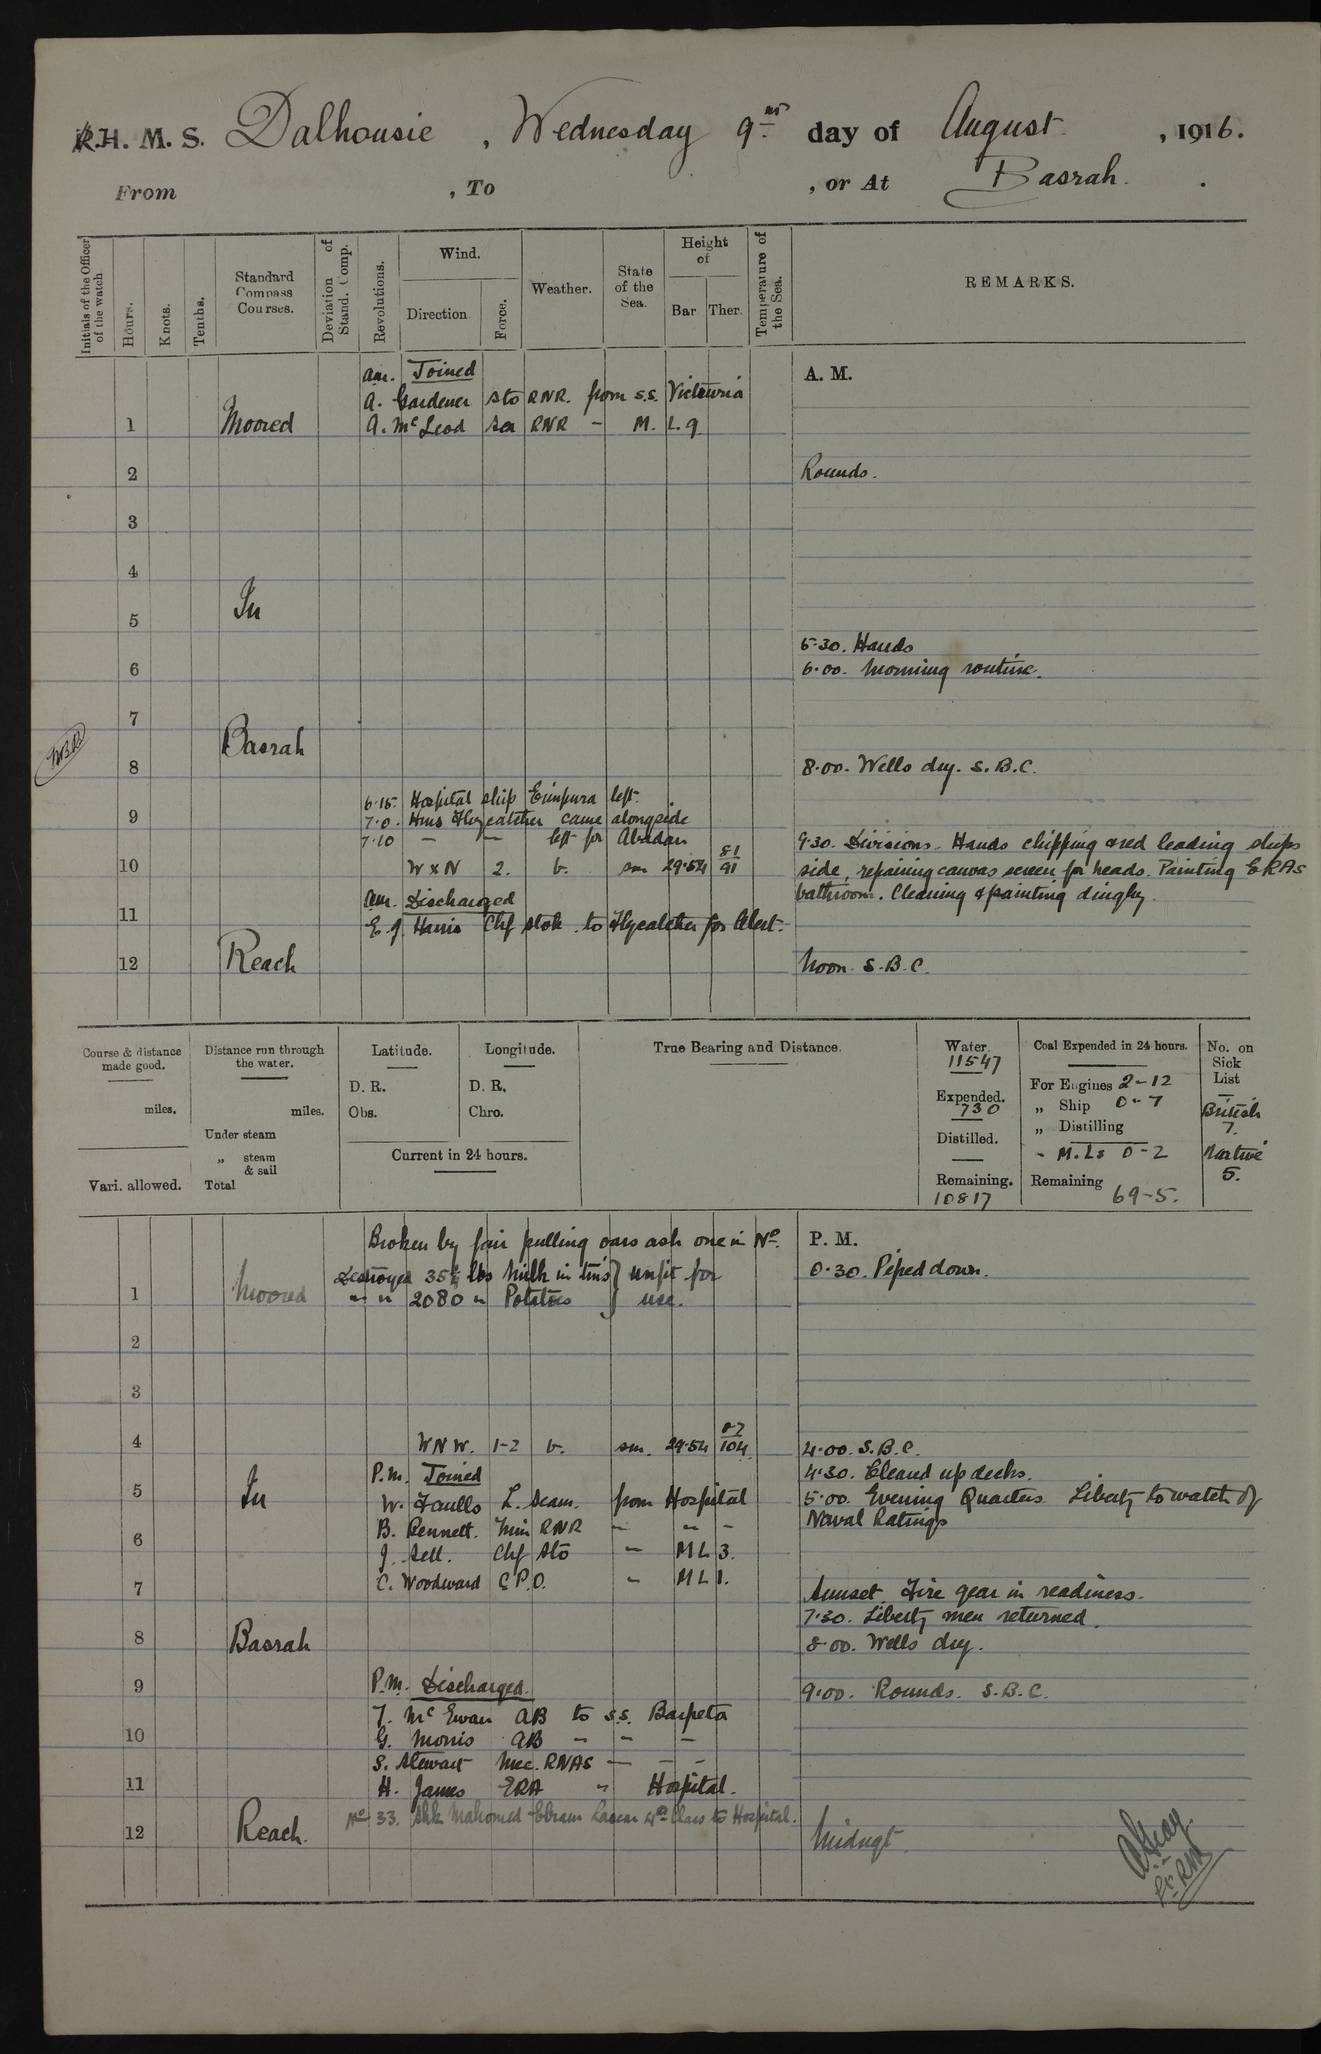 R.H. M. S. Dalhousie , Wednesday 9th day of August , 1916.
From , To , or At Basrah .
Initials of the Officer of the watch
Hours.
Knots.
Tenths.
Standard Compass Courses.
Deviation of Stand. Comp.
Revolutions.
Wind.
Direction
Force.
Weather.
State of the Sea.
Height of
Bar Ther.
Temperature of the Sea.
REMARKS.
am. Joined A. M.
A. Gardener sto RNR. from s.s. Victouria
1 Moored A. McLeod sea RNR - M. L. 9
2 Rounds.
3
4
5 In
5.30. Hands
6 6.00. Morning routine.
7
Basrah
8 8.00. Wells dry. S.B.C.
6.15. Hospital ship Erinpura left.
9 7.0. Hms Flycatcher came alongside
7.10 — — left for Abadan
9.30. Divisions. Hands chipping & red leading ships
10 W x N 2. b. sm 29.54 81/91 side, repairing canvas screen for heads. Painting ERAs
am. Discharged bathroom. Cleaning & painting dinghy.
11 E. J. Harris Chf stok. to Flycatcher for Alert.
12 Reach Noon. S.B.C.
Course & distance made good.
miles.
Vari. allowed.
Distance run through the water.
miles.
Under steam
„ steam & sail
Total
Latitude.
D. R.
Obs.
Longitude.
D. R.
Chro.
Current in 24 hours.
True Bearing and Distance.
Water.
11547
Expended.
730
Distilled.
Remaining.
10817
Coal Expended in 24 hours.
For Engines 2-12
„ Ship 0-7
„ Distilling
- M.Ls 0-2
Remaining 69-5.
No. on Sick List
British
7.
Native
5.
Broken by fair pulling oars ash one in No. P. M.
Destroyed 35½ lbs Milk in tins } unfit for 0.30. Piped down.
1 Moored " " 2080 " Potatoes } use.
2
3
4 WNW. 1-2 b. sm. 29.54 87/104. 4.00. S.B.C.
P.m. Joined 4.30. Cleared up decks.
5 In W. Faulls L. seam. from Hospital 5.00. Evening Quarters Liberty to watch of
B. Rennett. RNR - " - Naval Ratings
6 J. Sell. Chf Sto - ML 3.
7 C. Woodward C.P.O. - ML 1.
Sunset Fire gear in readiness.
7.30. Liberty men returned.
8 Basrah 8.00. Wells dry.
9 P.M. Discharged. 9.00. Rounds. S.B.C.
J. McEwan AB to s.s. Barpeta
10 G. Morris AB - - -
S. Stewart Mec. RNAS — - -
11 H. James ERA " Hospital.
No 33. Shk Mahomed Ebram Lascar Class to Hospital.
12 Reach. Midngt.